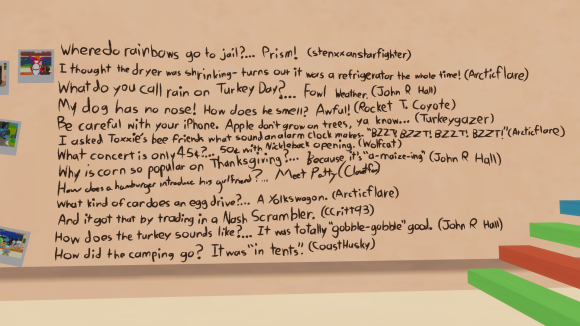 Where do rainbows go to jail?... Prism! (stenxxanstarfighter)
I thought the dryer was shrinking- turns out it was a refrigerator the whole time! (Arcticflare)
What do you call rain on Turkey Day?... Fowl Weather. (John R Hall)
My dog has no nose! How does he smell? Awful! (Rocket T. Coyote)
Be careful with your iPhone. Apple don't grow on trees, ya know... (Turkeygazer)
I asked Toxxie's bee friends what sound an alarm clock makes. "BZZT! BZZT! BZZT! BZZT!" (Arcticflare)
What concert is only 45¢?... 50¢ with Nickleback opening. (Wolfcat)
Why is corn so popular on Thanksgiving?... Because, it's "a-maize-ing" (John R Hall)
How does a hamburger introduce his girlfriend?... Meet Patty
What kind of car does an egg drive?... A Yolkswagon. (Arcticflare)
And it got that by trading in a Nash Scrambler. (CCritt93)
How does the turkey sounds like?... It was totally "gobble-gobble" good. (John R Hall)
How did the camping go? It was "in tents". (CoastHusky)